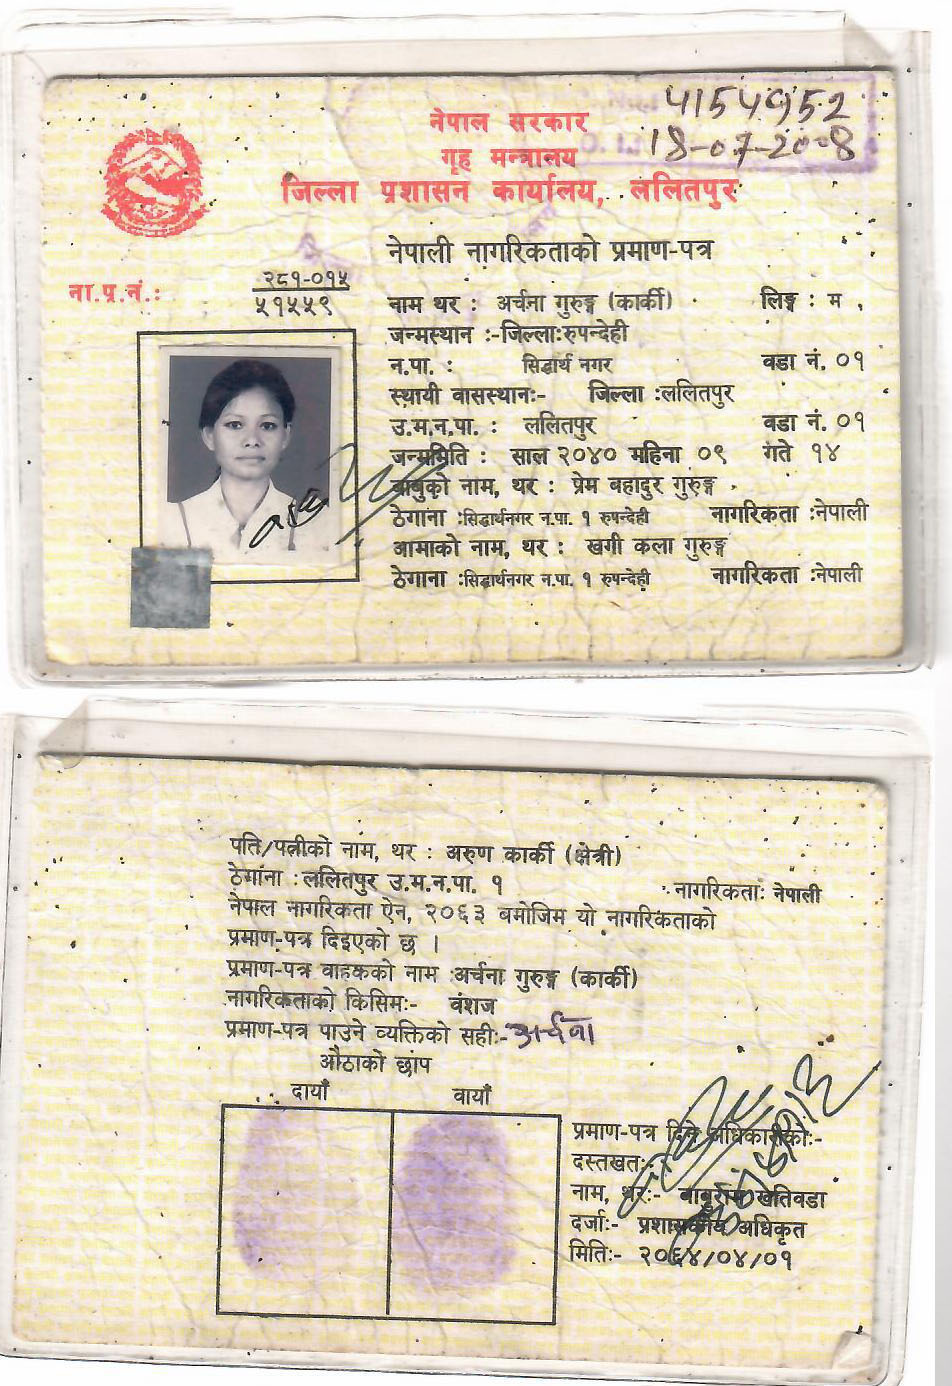 4154952
18-07-2008
नेपाल सरकार
गृह मन्त्रालय
जिल्ला प्रशासन कार्यालय, ललितपुर
नेपाली नागरिकताको प्रमाण-पत्र
ना.प्र.नं.: २८१-०१५
५१५५९
नाम थर : अर्चना गुरुङ्ग (कार्की) लिङ्ग : म
जन्मस्थान :-जिल्ला:रुपन्देही
न.पा. : सिद्धार्थ नगर वडा नं. ०१
स्थायी वासस्थान:- जिल्ला :ललितपुर
उ.म.न.पा. : ललितपुर वडा नं. ०१
जन्ममिति : साल २०४० महिना ०९ गते १४
बाबुको नाम, थर : प्रेम बहादुर गुरुङ्ग
ठेगाना :सिद्धार्थनगर न.पा. १ रुपन्देही नागरिकता :नेपाली
आमाको नाम, थर : खगी कला गुरुङ्ग
ठेगाना :सिद्धार्थनगर न.पा. १ रुपन्देही नागरिकता :नेपाली
पति/पत्नीको नाम, थर : अरुण कार्की (क्षेत्री)
ठेगाना : ललितपुर उ.म.न.पा. १ नागरिकता: नेपाली
नेपाल नागरिकता ऐन, २०६३ बमोजिम यो नागरिकताको
प्रमाण-पत्र दिइएको छ ।
प्रमाण-पत्र वाहकको नाम :अर्चना गुरुङ्ग (कार्की)
नागरिकताको किसिम:- वंशज
प्रमाण-पत्र पाउने व्यक्तिको सही:- अर्चना
औठाको छाप
दायाँ बायाँ
प्रमाण-पत्र दिने अधिकारीको:-
दस्तखत:-
नाम, थर:- बाबुराम खतिवडा
दर्जा:- प्रशासकीय अधिकृत
मिति:- २०६४/०४/०१